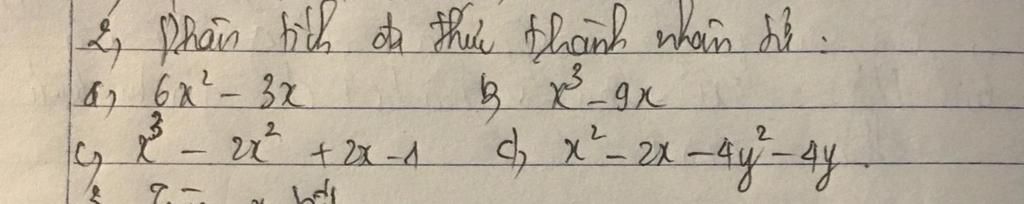 2, Phân tích đa thức thành nhân tử :
a, 6x² - 3x b, x³ - 9x
c, x³ - 2x² + 2x - 1 d, x² - 2x - 4y² - 4y.